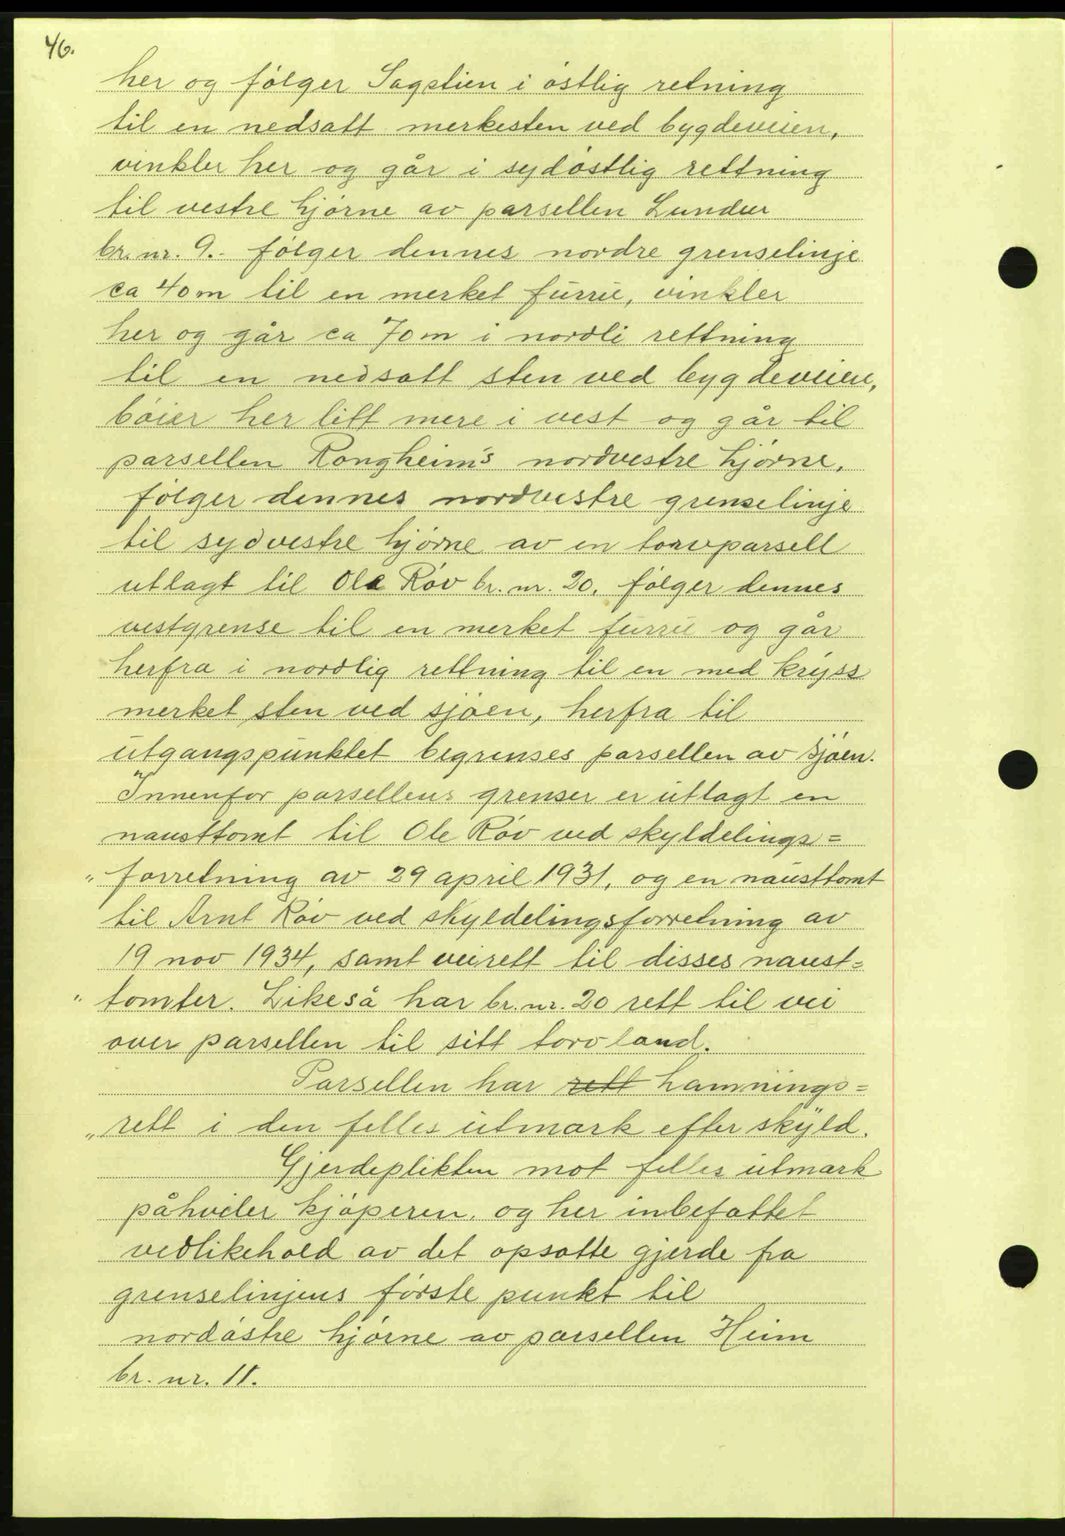 46.
her og følger Sagstien i østlig retning
til en nedsatt merkesten ved bygdeveien,
vinkler her og går i sydøstlig rettning
til vestre hjørne av parsellen Lundur
br. nr. 9. følger dennes nordre grenselinje
ca 40 m til en merket furru, vinkler
her og går ca 70 m i nordli rettning
til en nedsatt sten ved bygdeveien,
bøier her litt mere i vest og går til
parsellen Rongheim's nordvestre hjørne,
følger dennes nordvestre grenselinje
til sydvestre hjørne av en torvparsell
utlagt til Ole Røv br. nr. 20. følger dennes
vestgrense til en merket furru og går
herfra i nordlig rettning til en med kryss
merket sten ved sjøen, herfra til
utgangspunktet begrenses parsellen av sjøen.
Innenfor parsellens grenser er utlagt en
nausttomt til Ole Røv ved skyldelings=
„ forretning av 29 april 1931, og en nausttomt
til Arnt Røv ved skyldelingsforretning av
19 nov 1934, samt veirett til disses naust=
„ tomter. Likeså har br. nr. 20 rett til vei
over parsellen til sitt torvland.
Parsellen har rett hamnings=
„ rett i den felles utmark efter skyld.
Gjerdeplikten mot felles utmark
påhviler kjøperen, og her inbefattet
vedlikehold av det opsatte gjerde fra
grenselinjens første punkt til
nordøstre hjørne av parsellen Heim
br. nr. 11.